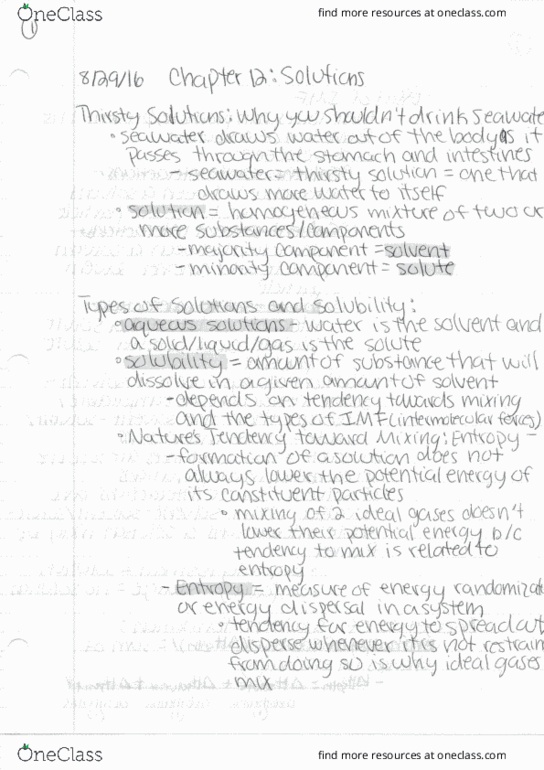 OneClass
find more resources at oneclass.com
1
8/29/16 Chapter 12: Solutions
Thirsty Solutions: Why you shouldn't drink seawate
• seawater draws water out of the body as it
passes through the stomach and intestines
- seawater = thirsty solution = one that
draws more water to itself
• solution = homogeneous mixture of two or
more substances/components
- majority component = solvent
- minority component = solute
Types of Solutions and solubility:
• aqueous solutions - water is the solvent and
a solid/liquid/gas is the solute
• solubility = amount of substance that will
dissolve in a given amount of solvent
- depends on tendency towards mixing
and the types of IMF (intermolecular forces)
• Nature's Tendency Toward Mixing: Entropy -
- formation of a solution does not
always lower the potential energy of
its constituent particles
• mixing of 2 ideal gases doesn't
lower their potential energy b/c
tendency to mix is related to
entropy
- Entropy = measure of energy randomizat
or energy dispersal in a system
• tendency for energy to spread out
disperse whenever it is not restrain
from doing so is why ideal gases
mix
OneClass
find more resources at oneclass.com